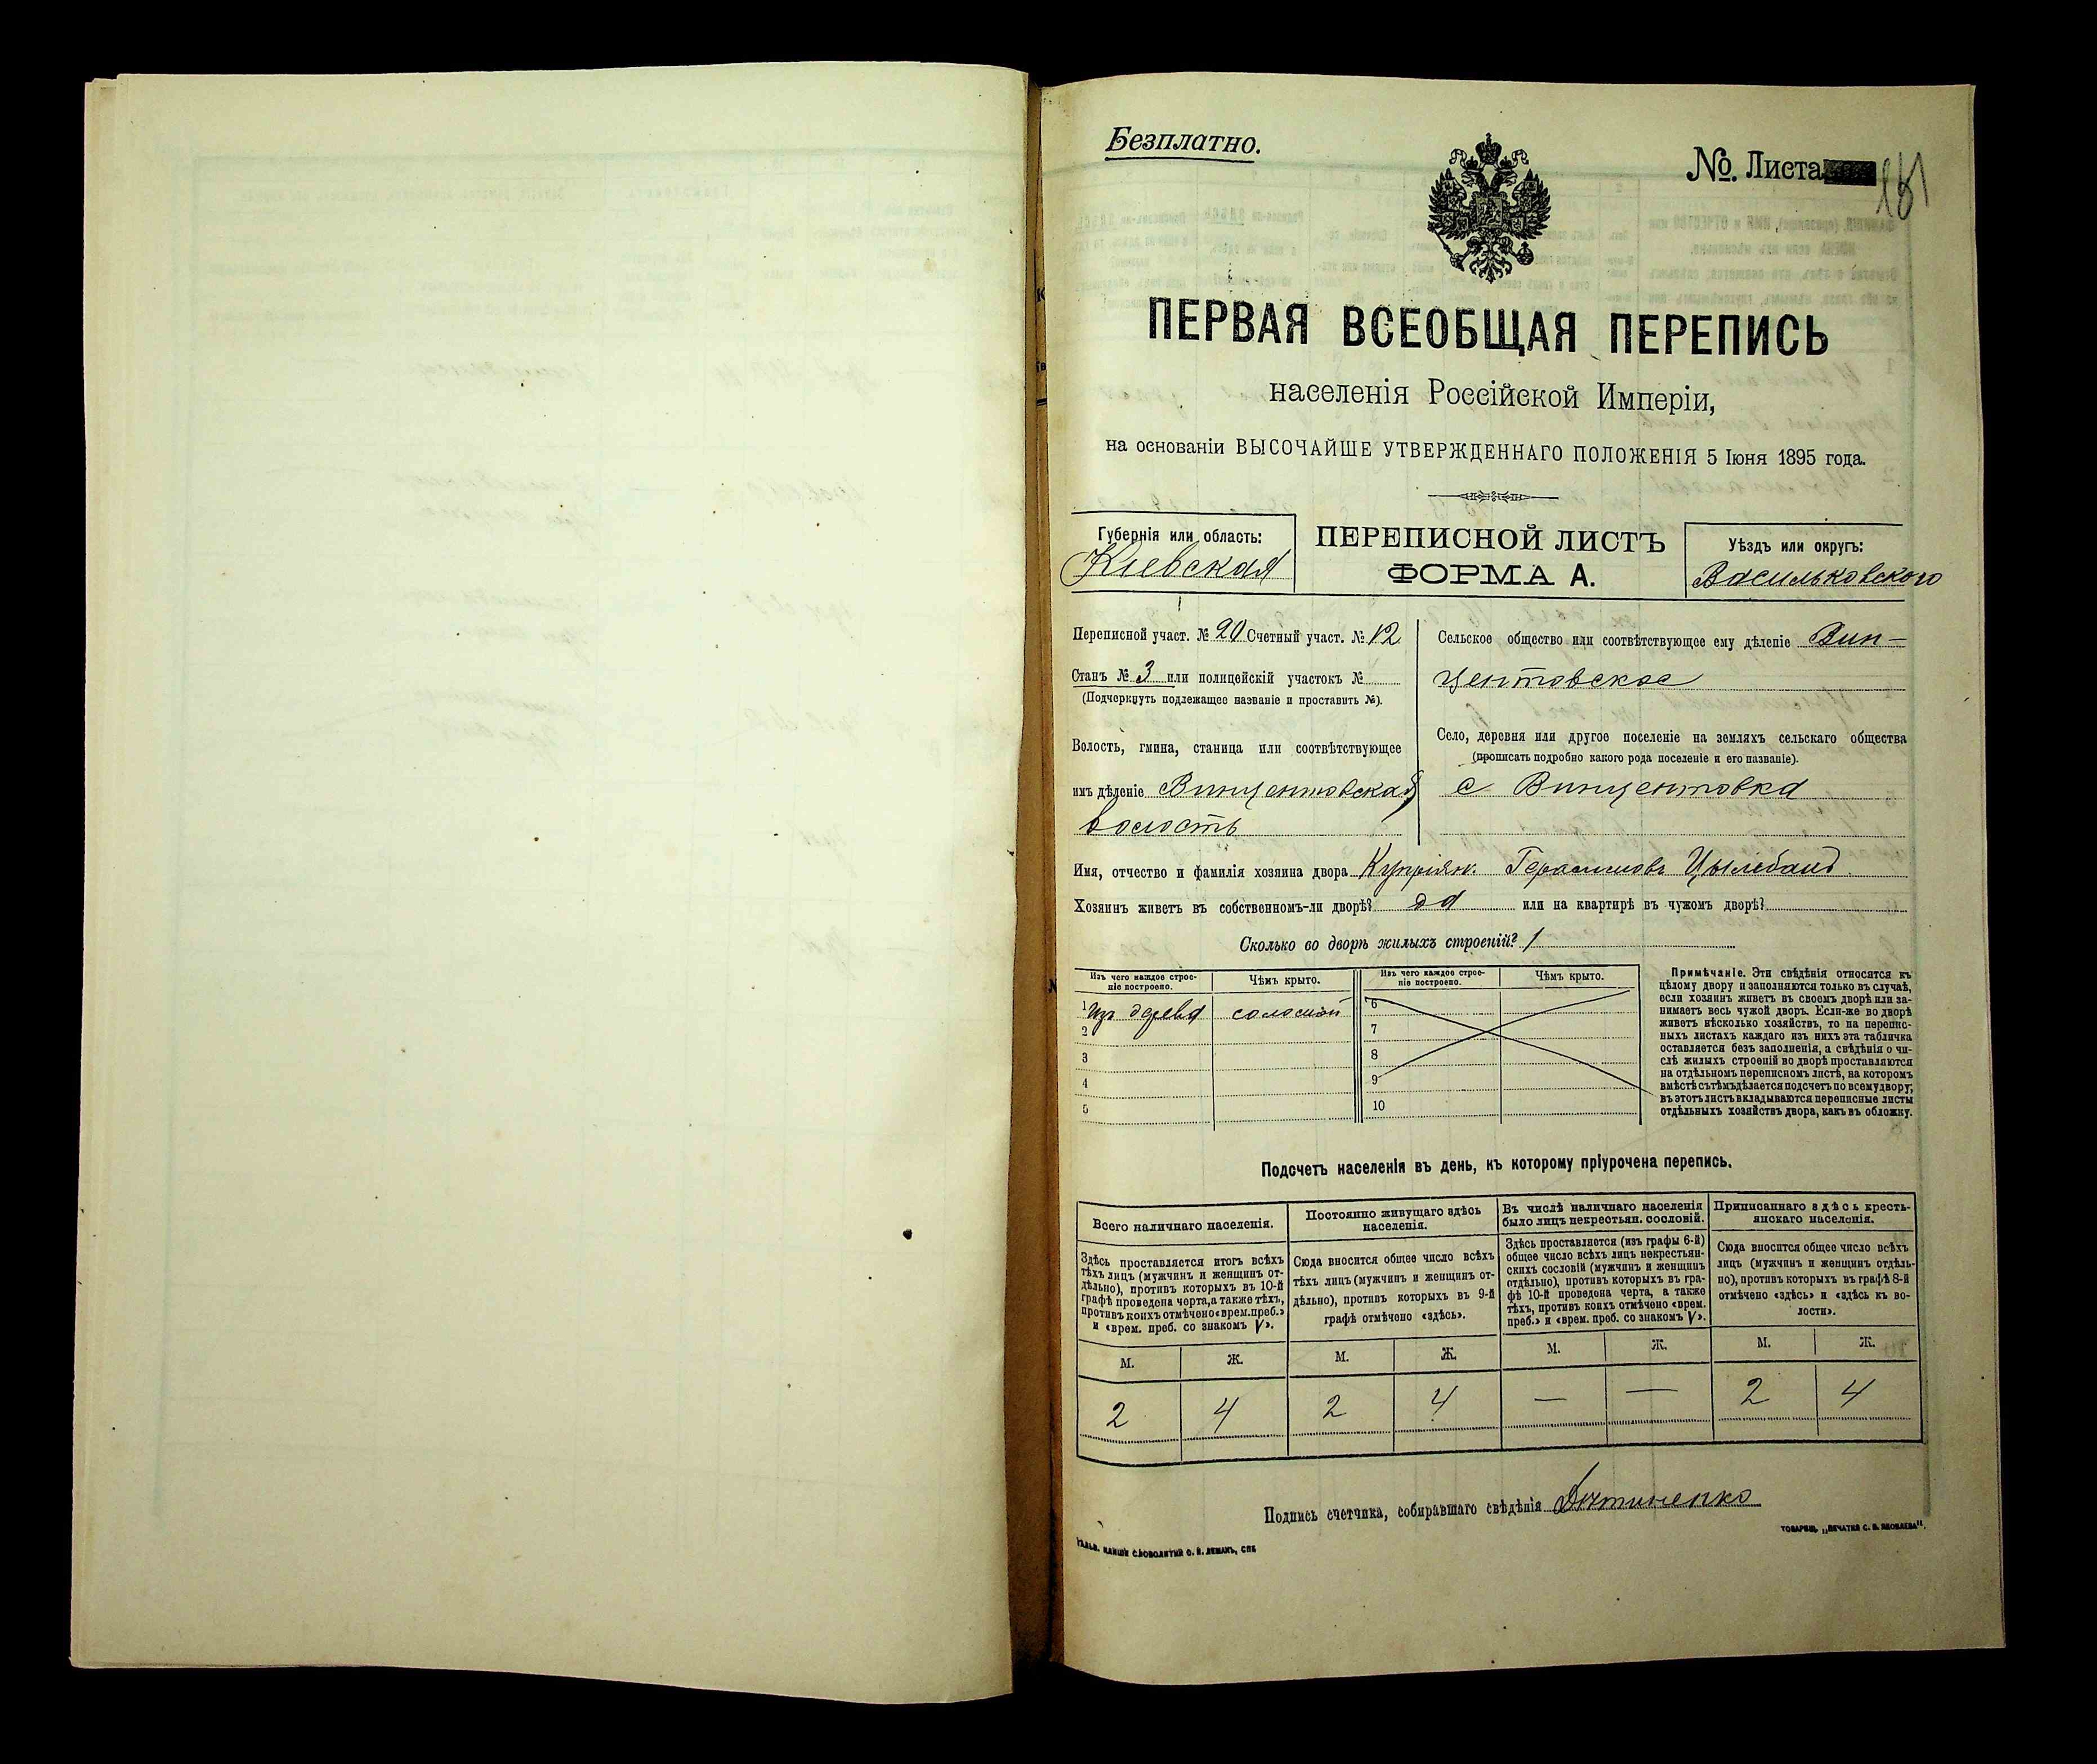 Безплатно.
№. Листа 181
ПЕРВАЯ ВСЕОБЩАЯ ПЕРЕПИСЬ
населенія Россійской Имперіи,
на основаніи ВЫСОЧАЙШЕ УТВЕРЖДЕННАГО ПОЛОЖЕНІЯ 5 Іюня 1895 года.
Губернія или область:
Кіевская
ПЕРЕПИСНОЙ ЛИСТЪ
ФОРМА А.
Уѣздъ или округъ:
Васильковского
Переписной участ. № 20 Счетный участ. № 12
Станъ № 3 или полицейскій участокъ №
(Подчеркнуть подлежащее названіе и проставить №).
Волость, гмина, станица или соотвѣтствующее
имъ дѣленіе Винцентовская
волость
Сельское общество или соотвѣтствующее ему дѣленіе Вин-
центовское
Село, деревня или другое поселеніе на земляхъ сельскаго общества
(прописать подробно какого рода поселеніе и его названіе).
с Винцентовка
Имя, отчество и фамилія хозяина двора Купріян. Герасимовъ
Хозяинъ живетъ въ собственномъ-ли дворѣ? да или на квартирѣ въ чужомъ дворѣ?
Сколько во дворѣ жилыхъ строеній? 1
Изъ чего каждое строе-
ніе построено.
Чѣмъ крыто.
Изъ чего каждое строе-
ніе построено.
Чѣмъ крыто.
1 Изъ дерева соломой 6
2 7
3 8
4 9
5 10
Примѣчаніе. Эти свѣдѣнія относятся къ
цѣлому двору и заполняются только въ случаѣ,
если хозяинъ живетъ въ своемъ дворѣ или за-
нимаетъ весь чужой дворъ. Если-же во дворѣ
живетъ нѣсколько хозяйствъ, то на перепис-
ныхъ листахъ каждаго изъ нихъ эта табличка
оставляется безъ заполненія, а свѣдѣнія о чи-
слѣ жилыхъ строеній во дворѣ проставляются
на отдѣльномъ переписномъ листѣ, на которомъ
вмѣстѣ съ тѣмъ дѣлается подсчетъ по всему двору;
въ этотъ листъ вкладываются переписные листы
отдѣльныхъ хозяйствъ двора, какъ въ обложку.
Подсчетъ населенія въ день, къ которому пріурочена перепись.
Всего наличнаго населенія.
Здѣсь проставляется итогъ всѣхъ
тѣхъ лицъ (мужчинъ и женщинъ от-
дѣльно), противъ которыхъ въ 10-й
графѣ проведена черта, а также тѣхъ,
противъ коихъ отмѣчено «врем. преб.»
и «врем. преб. со знакомъ V».
Постоянно живущаго здѣсь
населенія.
Сюда вносится общее число всѣхъ
тѣхъ лицъ (мужчинъ и женщинъ от-
дѣльно), противъ которыхъ въ 9-й
графѣ отмѣчено «здѣсь».
Въ числѣ наличнаго населенія
было лицъ некрестьян. сословій.
Здѣсь проставляется (изъ графы 6-й)
общее число всѣхъ лицъ некрестьян-
скихъ сословій (мужчинъ и женщинъ
отдѣльно), противъ которыхъ въ гра-
фѣ 10-й проведена черта, а также
тѣхъ, противъ коихъ отмѣчено «врем.
преб.» и «врем. преб. со знакомъ V».
Приписаннаго здѣсь кресть-
янскаго населенія.
Сюда вносится общее число всѣхъ
лицъ (мужчинъ и женщинъ отдѣль-
но), противъ которыхъ въ графѣ 8-й
отмѣчено «здѣсь» и «здѣсь къ во-
лости».
М. Ж. М. Ж. М. Ж. М. Ж.
2 4 2 4 — — 2 4
Подпись счетчика, собиравшаго свѣдѣнія
ТОВАРИЩ. „ПЕЧАТНЯ С. П. ЯКОВЛЕВА".